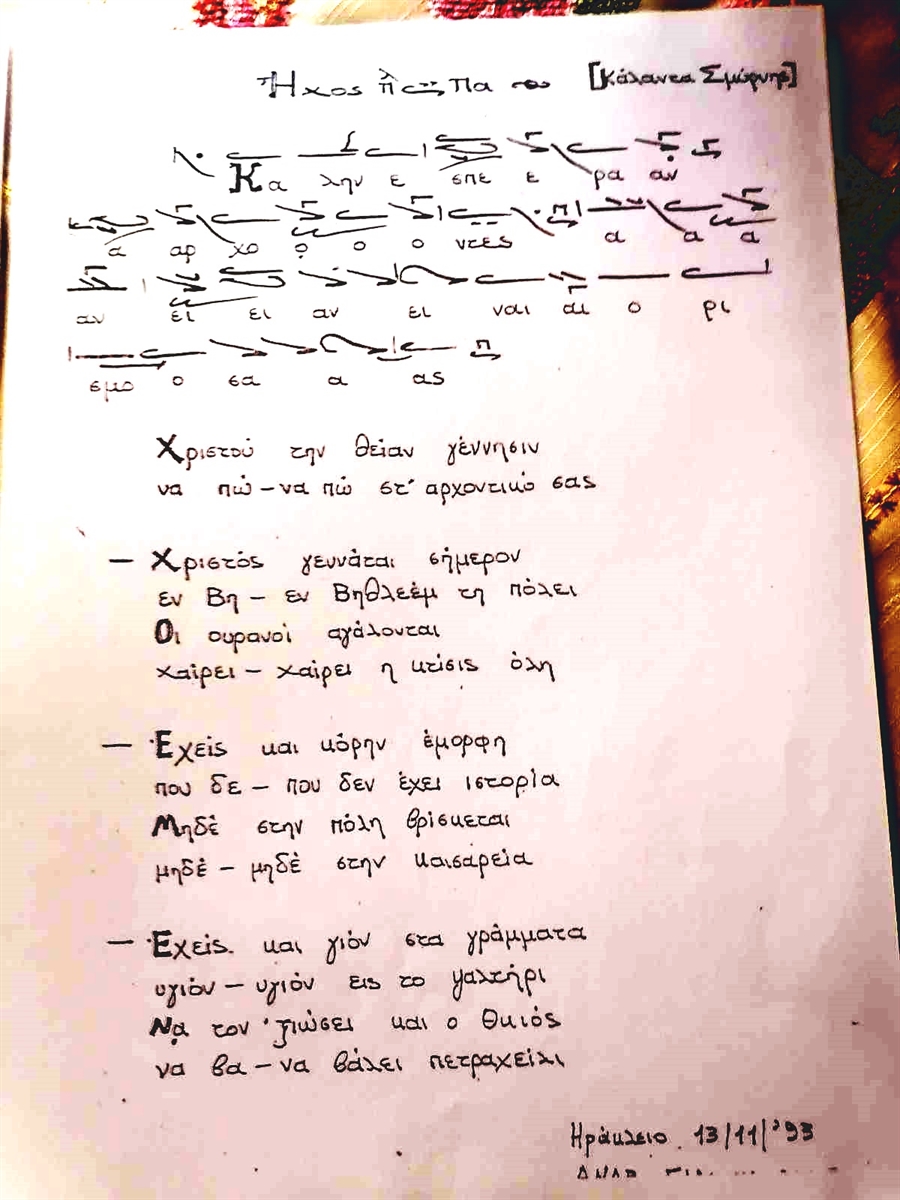 Ήχος πλ Πα [Κάλαντα Σμύρνης]
Κα λην ε σπε ε ρα αν
α αρ χο ο ο ο ντες α α α
αν ει ει αν ει ναι αι ο ρι
σμο ο σα α ας
Χριστού την θείαν γέννησιν
να πώ - να πώ στ' αρχοντικό σας
- Χριστός γεννάται σήμερον
εν Βη - εν Βηθλεέμ τη πόλει
Οι ουρανοί αγάλονται
χαίρει - χαίρει η κτίσις όλη
- Έχεις και κόρην έμορφη
που δε - που δεν έχει ιστορία
Μηδέ στην πόλη βρίσκεται
μηδέ - μηδέ στην Καισαρεία
- Έχεις και γιόν στα γράμματα
υγιόν - υγιόν εις το ψαλτήρι
Να τον αξιώσει και ο Θκιός
να βα - να βάλει πετραχείλι
Ηράκλειο 13/11/'93